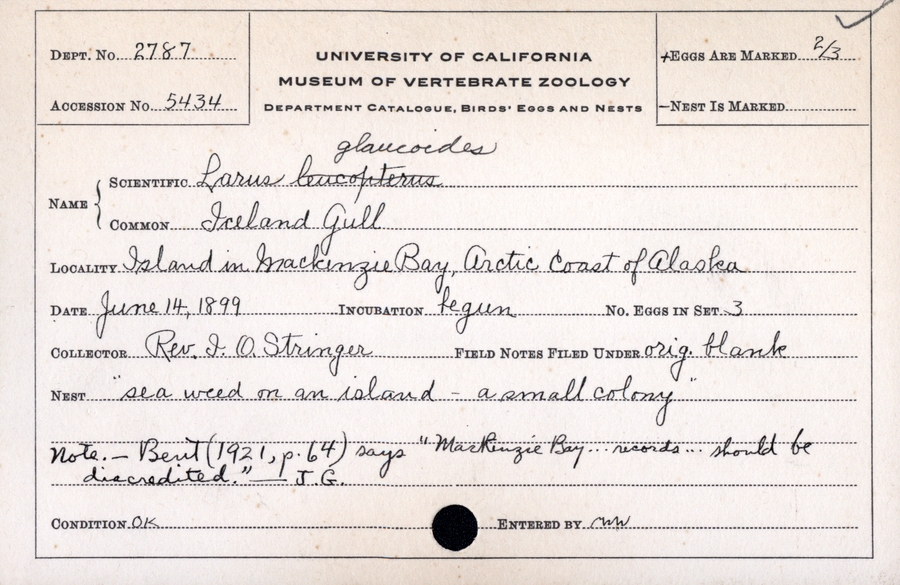 Dept. No. 2787
Accession No. 5434
UNIVERSITY OF CALIFORNIA
MUSEUM OF VERTEBRATE ZOOLOGY
Department Catalogue, Birds' Eggs and Nests
+Eggs Are Marked 2/3
—Nest Is Marked
glaucoides
Name { Scientific Larus leucopterus
Common Iceland Gull
Locality Island in Mackenzie Bay, Arctic Coast of Alaska
Date June 14, 1899 Incubation begun No. Eggs in Set 3
Collector Rev. I. O. Stringer Field Notes Filed Under orig. blank
Nest "sea weed on an island - a small colony"
Note. — Bent (1921, p. 64) says "MacKenzie Bay... records... should be
discredited." — J.G.
Condition OK Entered by